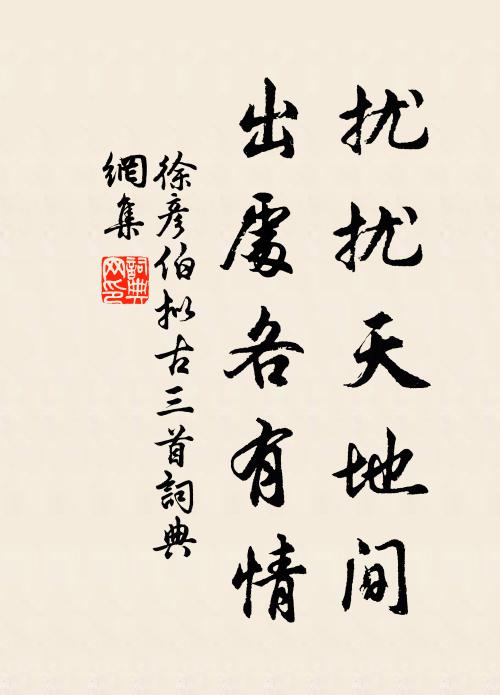 扰扰天地间
出處各有情
徐彦伯拟古三首詞典
網集
詞典
网印